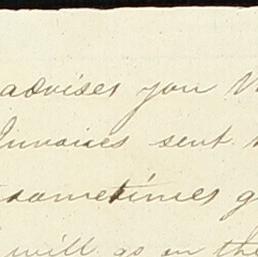 advises you
Invoices sent
sometimes
will go on the